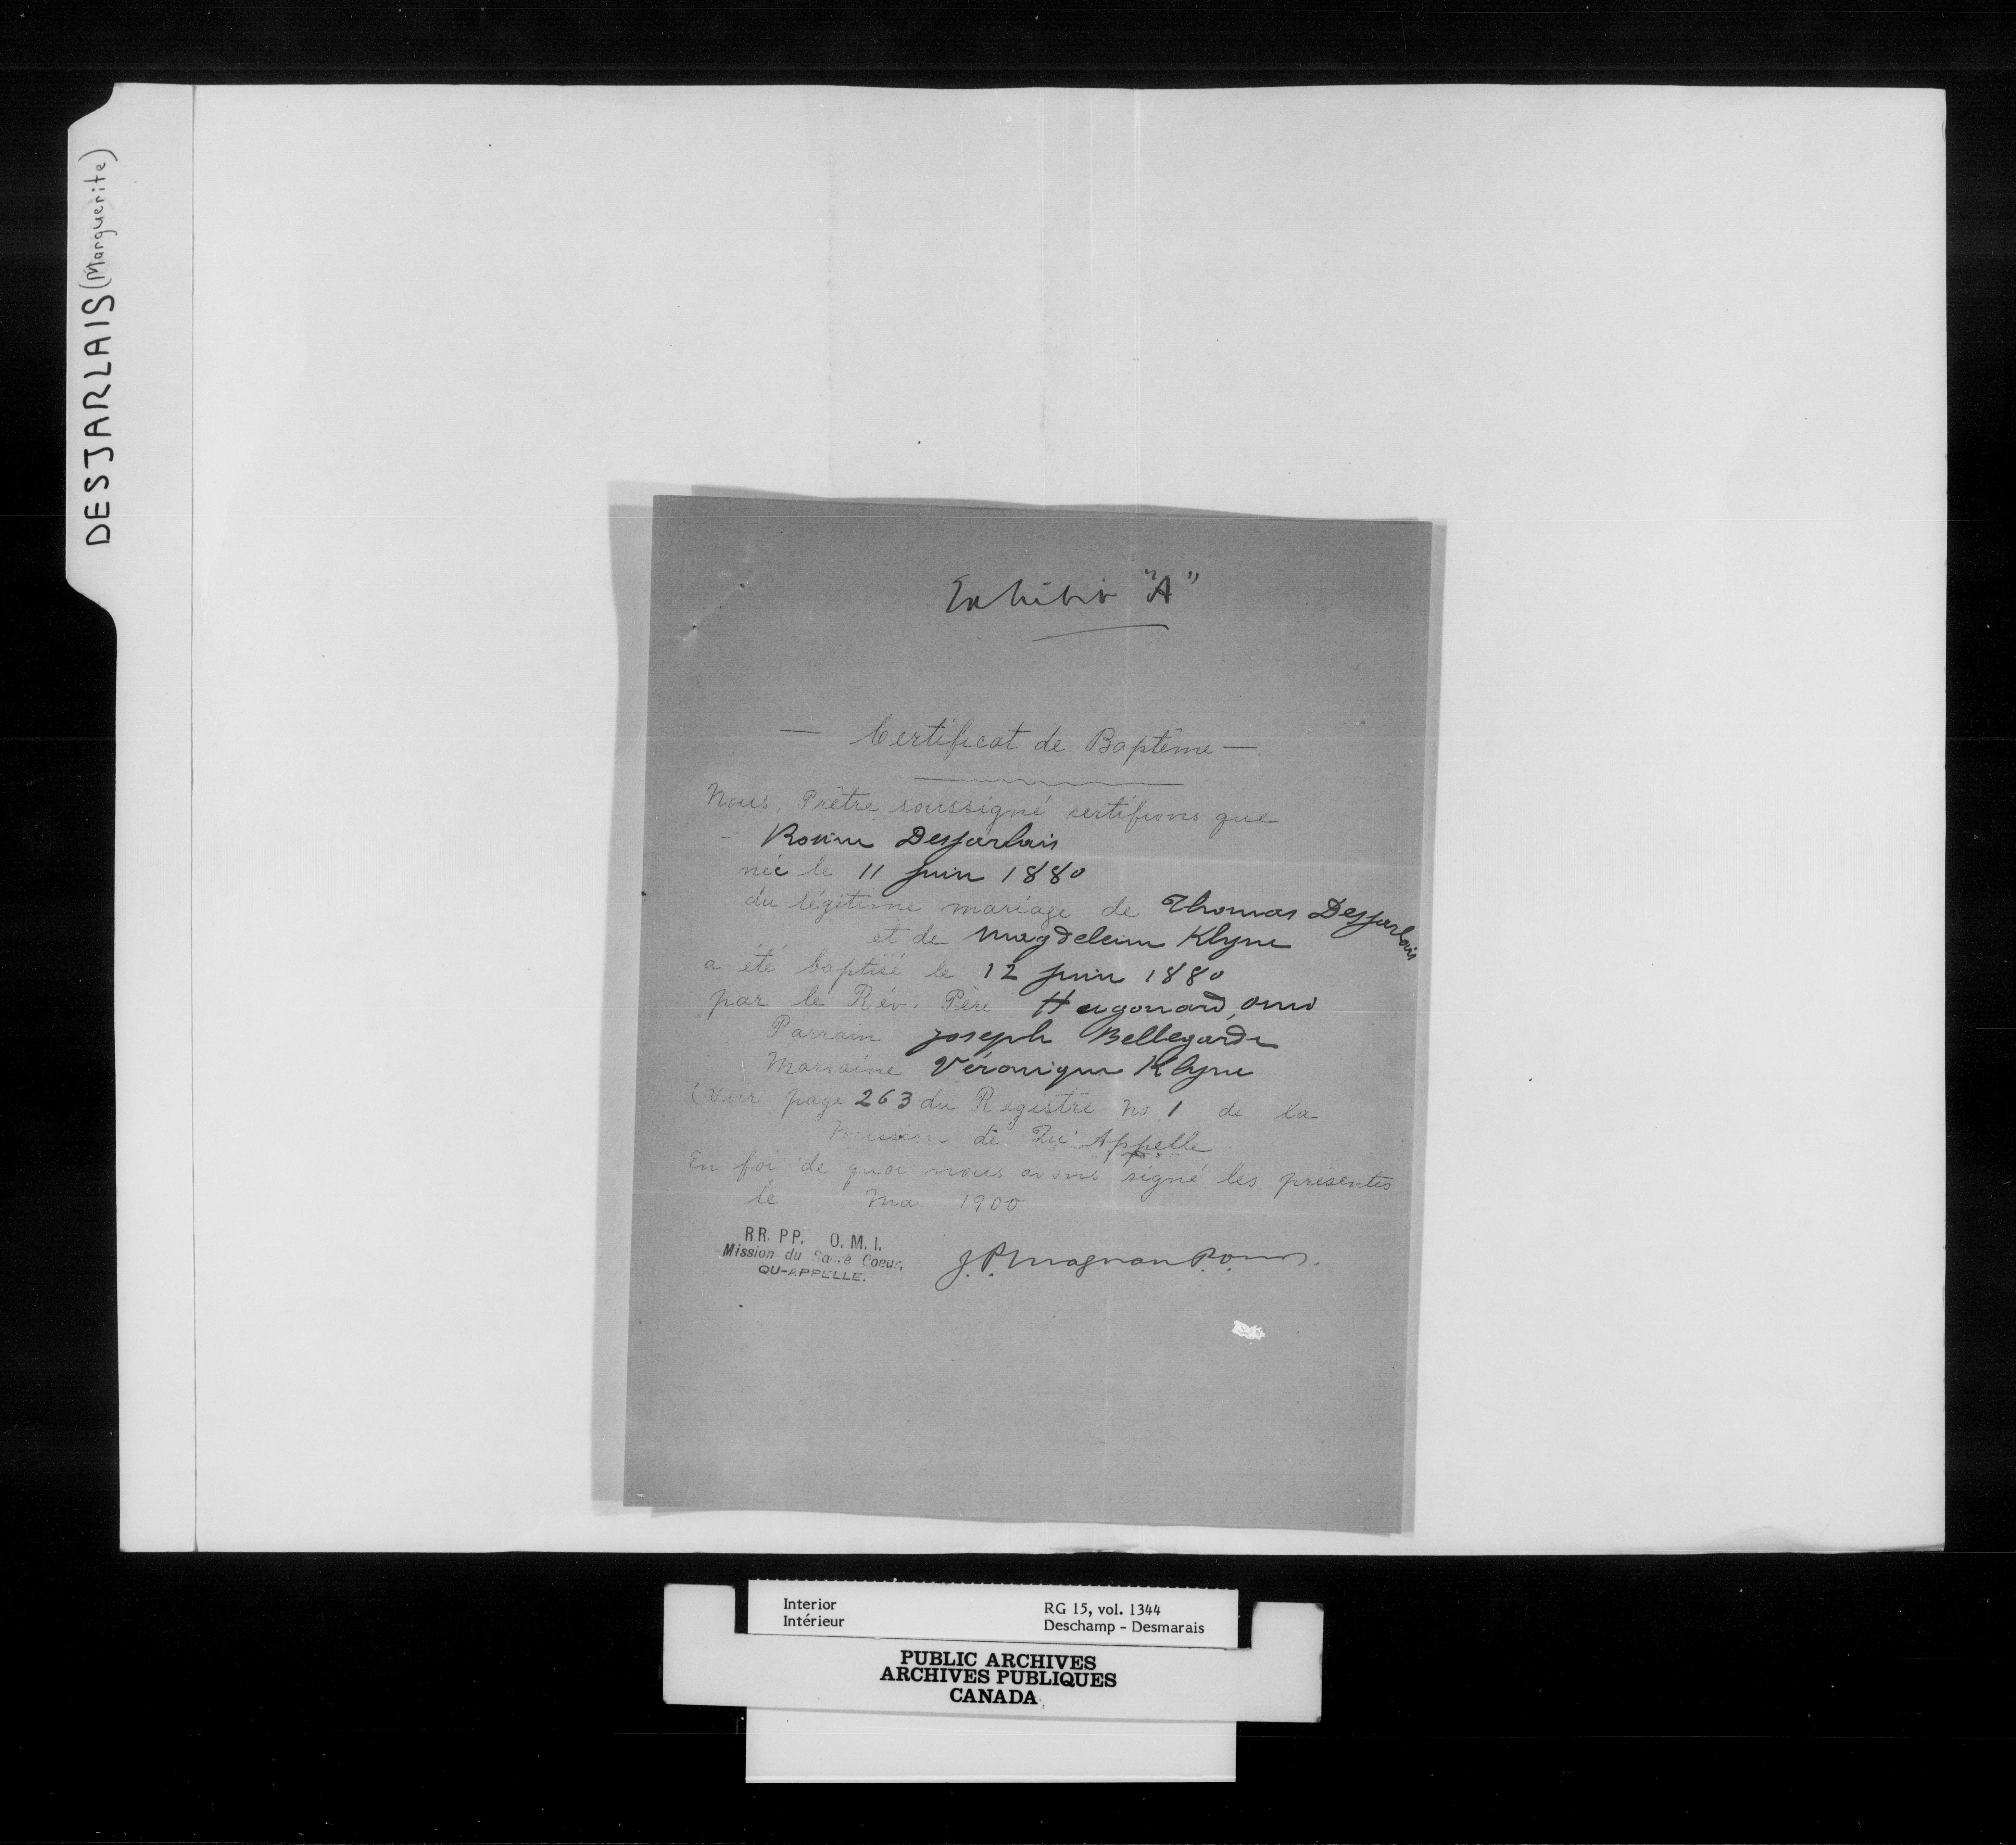 DESJARLAIS (Marguerite)
Exhibit "A"
— Certificat de Baptême —
Nous, Prêtre soussigné certifions que
- Rosine Desjarlais
née le 11 juin 1880
du légitime mariage de Thomas Desjarlais
et de Magdeleine Klyne
a été baptisé le 12 juin 1880
par le Rév. Père Hugonard, omi
Parrain Joseph Bellegarde
Marraine Véronique Klyne
(Voir page 263 du Registre No 1 de la
Mission de Qu'Appelle
En foi de quoi nous avons signé les présentes
le Mai 1900
RR. PP. O. M. I.
Mission du Sacré Coeur,
QU-APPELLE.
J. P. Magnan P.o.m.i.
Interior
Intérieur
RG 15, vol. 1344
Deschamp - Desmarais
PUBLIC ARCHIVES
ARCHIVES PUBLIQUES
CANADA